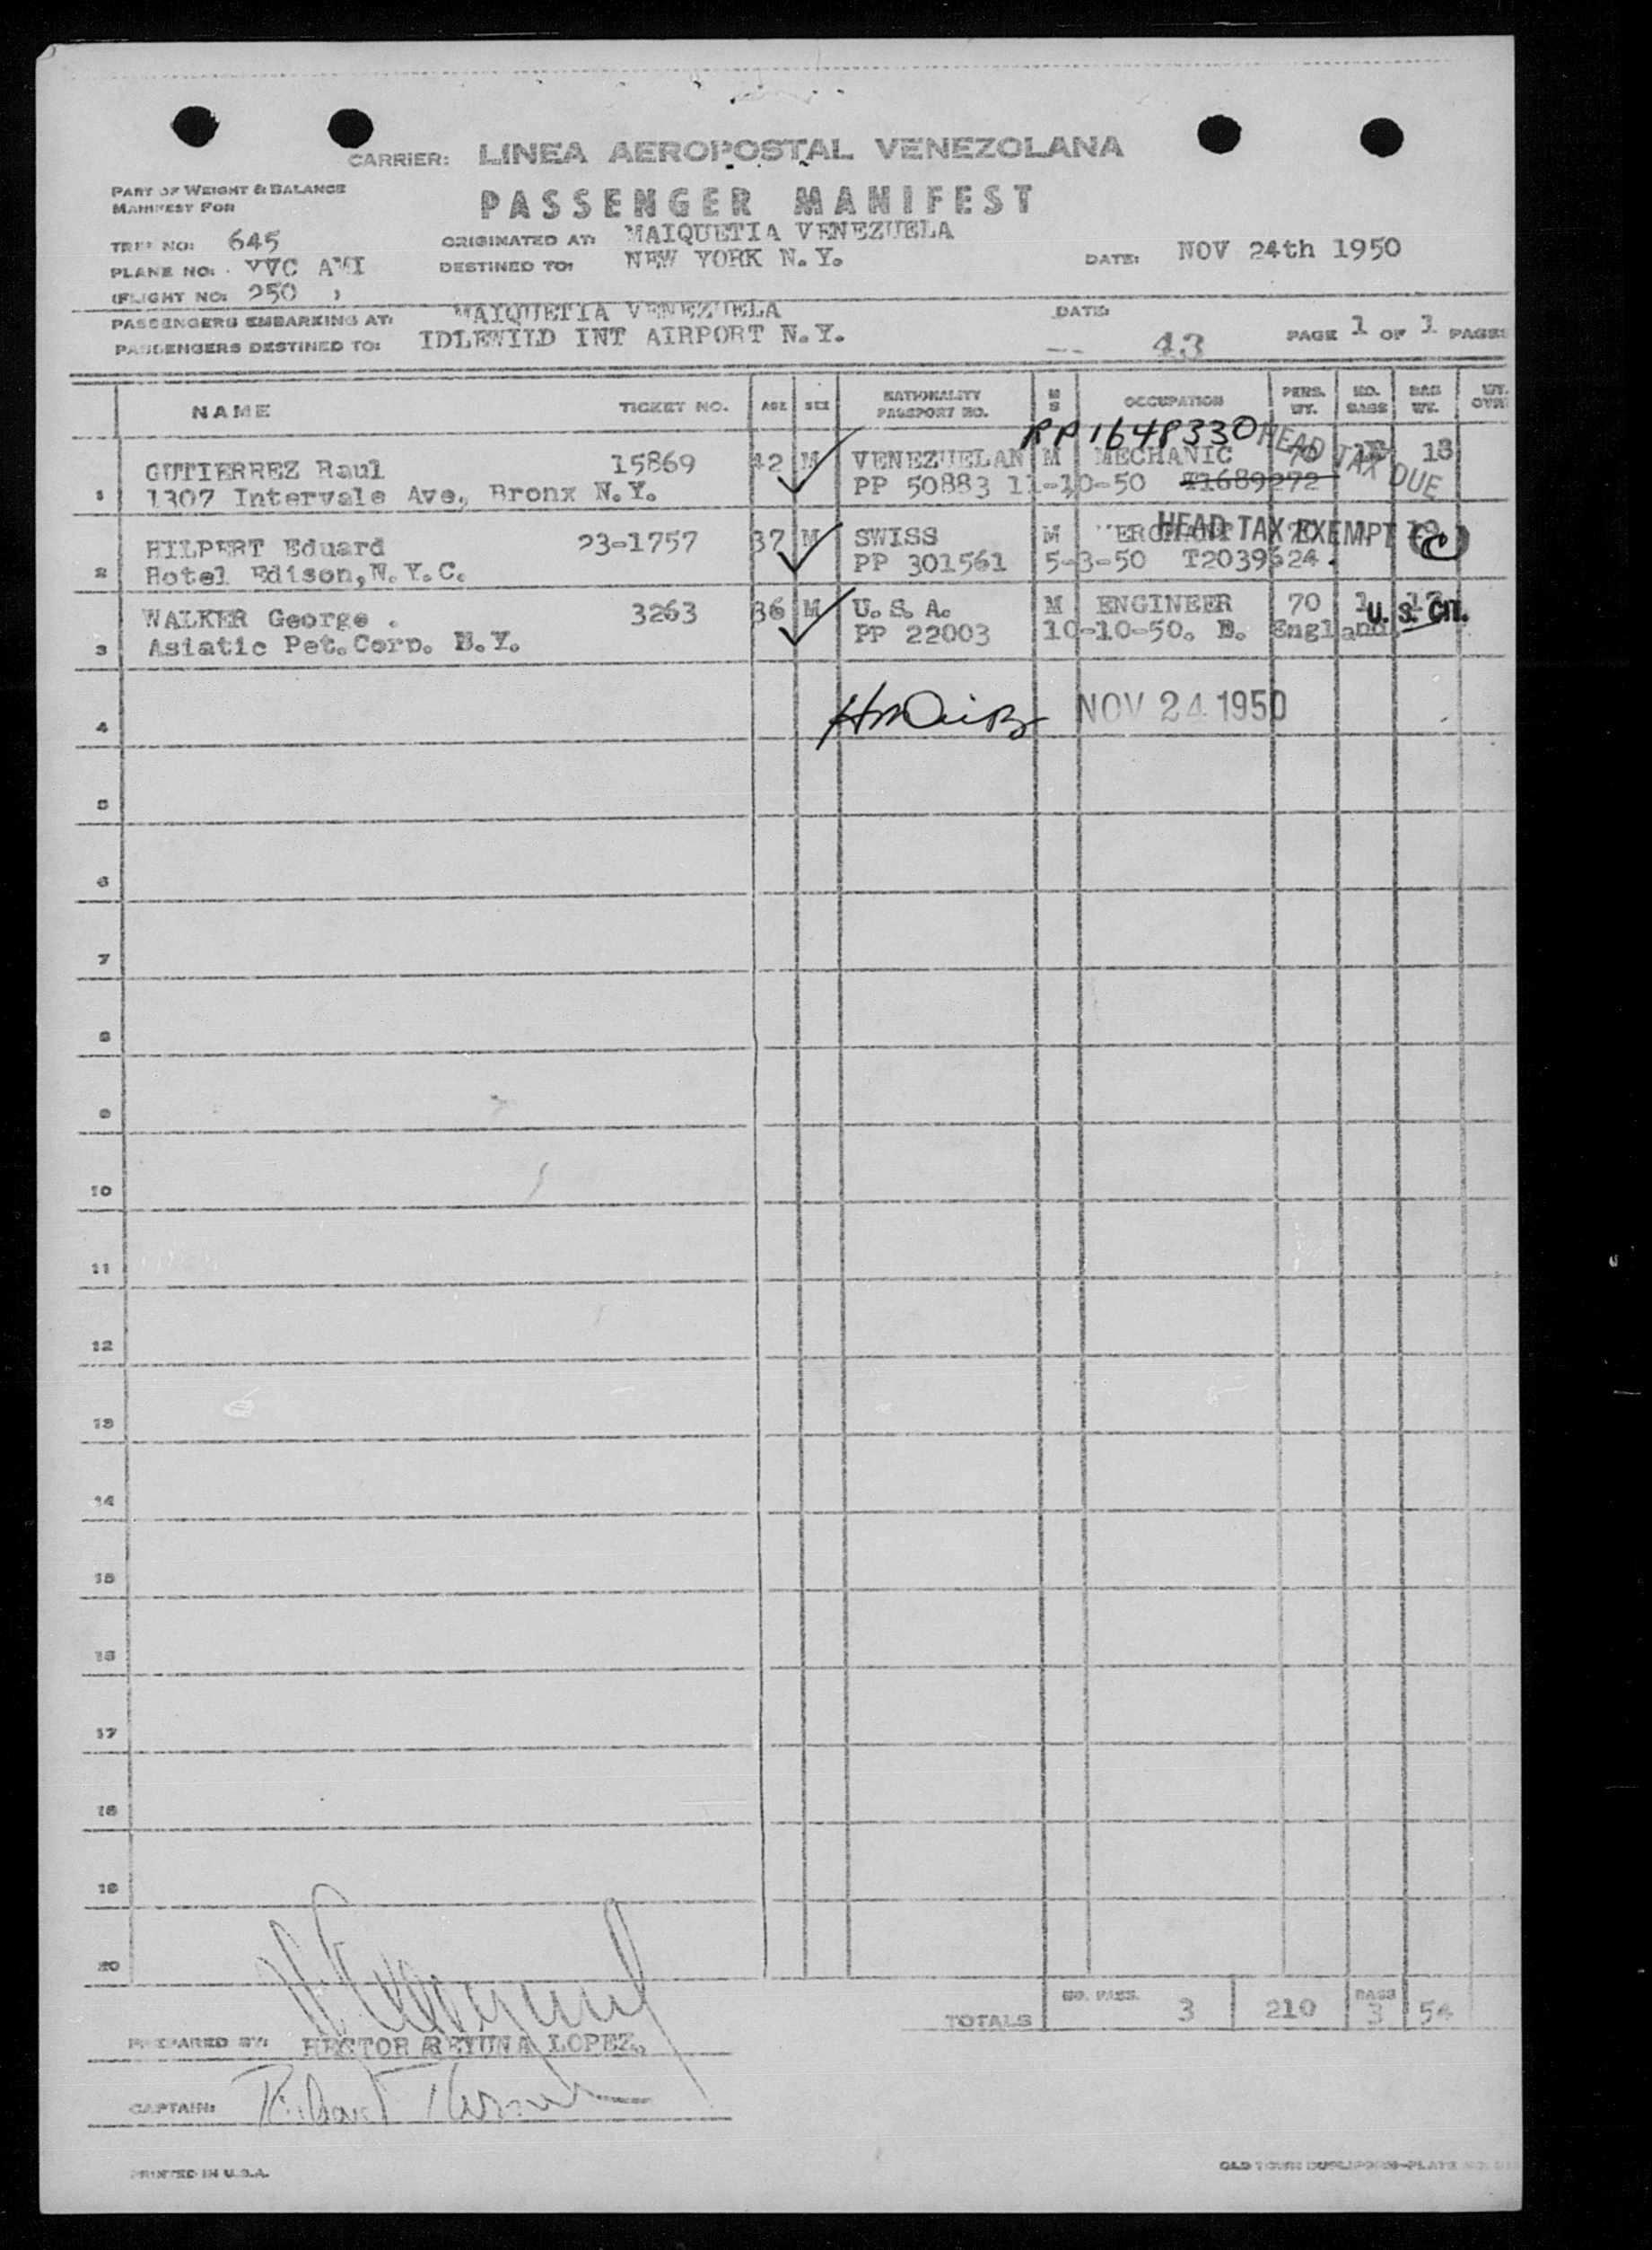 CARRIER: LINEA AEROPOSTAL VENEZOLANA
PART OF WEIGHT & BALANCE
MANIFEST FOR
PASSENGER MANIFEST
TRIP NO: 645
ORIGINATED AT: MAIQUETIA VENEZUELA
PLANE NO: YVC AMI
DESTINED TO: NEW YORK N.Y.
DATE: NOV 24th 1950
(FLIGHT NO: 250 )
PASSENGERS EMBARKING AT: MAIQUETIA VENEZUELA
DATE:
PASSENGERS DESTINED TO: IDLEWILD INT AIRPORT N.Y.
43
PAGE 1 OF 1 PAGES
NAME TICKET NO. AGE SEX NATIONALITY PASSPORT NO. M S OCCUPATION PERS. WT. NO. BAGS BAG WT. WT. OVR
RP1648330 HEAD TAX DUE
GUTIERREZ Raul 15869 42 M VENEZUELAN M MECHANIC 70 18
1 1307 Intervale Ave, Bronx N.Y. PP 50883 11-10-50 T1689272
HILPERT Eduard 23-1757 37 M SWISS M HEAD TAX EXEMPT (C)
2 Hotel Edison, N.Y.C. PP 301561 5-3-50 T2039624.
WALKER George . 3263 36 M U.S.A. M ENGINEER 70 1 17 U.S. CIT.
3 Asiatic Pet.Corp. N.Y. PP 22003 10-10-50. B. England.
NOV 24 1950
4
5
6
7
8
9
10
11
12
13
14
15
16
17
18
19
20
TOTALS NO. PASS. 3 210 BAGS 3 54
PREPARED BY: HECTOR REYUNA LOPEZ.
CAPTAIN:
PRINTED IN U.S.A.